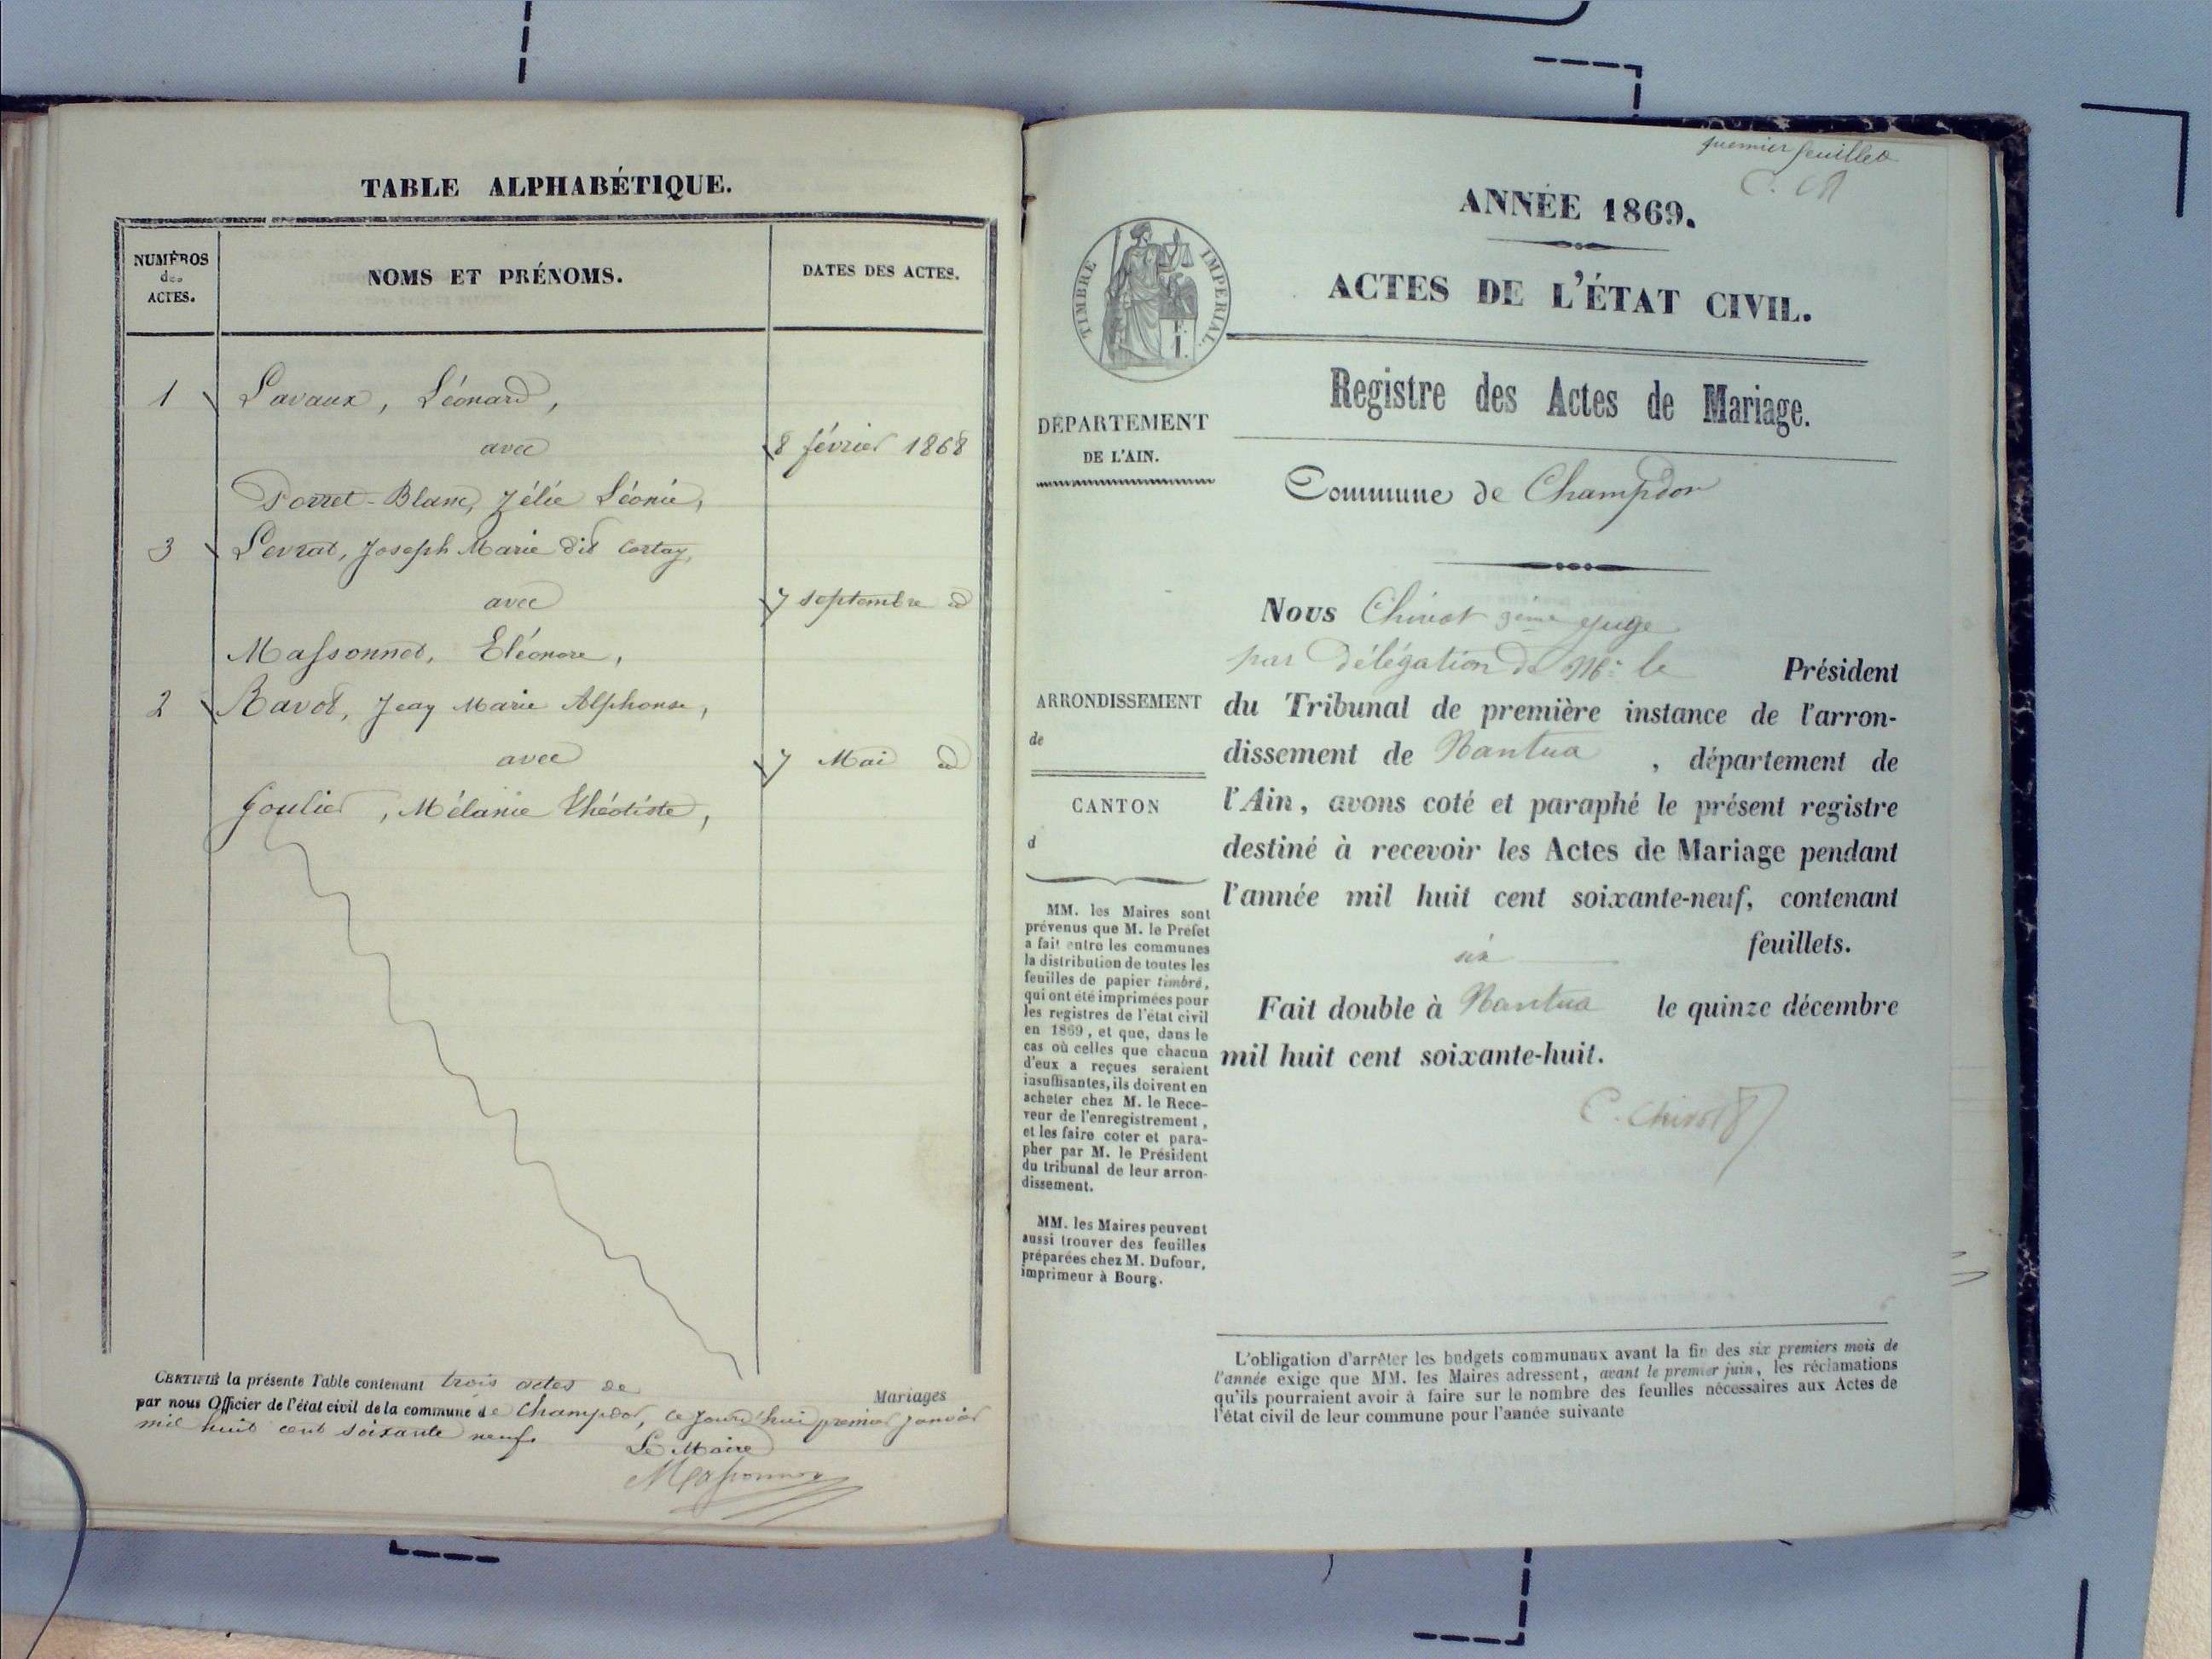 TABLE ALPHABÉTIQUE.
NUMÉROS
des
ACTES.
NOMS ET PRÉNOMS.
DATES DES ACTES.
1 Lavaux, Léonard,
avec
8 février 1868
Porret-Blanc, Zélie Léonie,
3 Levrat, Joseph Marie dit Cortay,
avec
7 septembre id
Massonnet, Eléonore,
2 Ravot, Jean Marie Alphonse,
avec
7 Mai id
Goulier, Mélanie Théotiste,
CERTIFIÉ la présente Table contenant trois actes de Mariages
par nous Officier de l'état civil de la commune de Champdor, ce jourd'hui premier janvier
mil huit cent soixante neuf.
Le Maire
Massonnet
premier feuillet
ANNÉE 1869.
ACTES DE L'ÉTAT CIVIL.
TIMBRE IMPÉRIAL.
Registre des Actes de Mariage.
DÉPARTEMENT
DE L'AIN.
Commune de Champdor
ARRONDISSEMENT
de
CANTON
d
MM. les Maires sont
prévenus que M. le Préfet
a fait entre les communes
la distribution de toutes les
feuilles de papier timbré,
qui ont été imprimées pour
les registres de l'état civil
en 1869, et que, dans le
cas où celles que chacun
d'eux a reçues seraient
insuffisantes, ils doivent en
acheter chez M. le Rece-
veur de l'enregistrement,
et les faire coter et para-
pher par M. le Président
du tribunal de leur arron-
dissement.
MM. les Maires peuvent
aussi trouver des feuilles
préparées chez M. Dufour,
imprimeur à Bourg.
Nous Chivot 3ème juge
par délégation de Mr le Président
du Tribunal de première instance de l'arron-
dissement de Nantua, département de
l'Ain, avons coté et paraphé le présent registre
destiné à recevoir les Actes de Mariage pendant
l'année mil huit cent soixante-neuf, contenant
six feuillets.
Fait double à Nantua le quinze décembre
mil huit cent soixante-huit.
C. Chivot
L'obligation d'arrêter les budgets communaux avant la fin des six premiers mois de
l'année exige que MM. les Maires adressent, avant le premier juin, les réclamations
qu'ils pourraient avoir à faire sur le nombre des feuilles nécessaires aux Actes de
l'état civil de leur commune pour l'année suivante